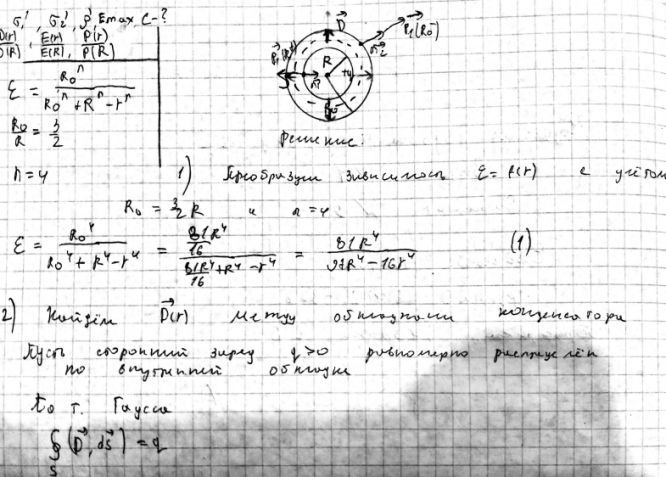 σ₁', σ₂', ρ', Emax, C - ?
D(r)/D(R), E(r)/E(R), P(r)/P(R)
ε = R₀ⁿ / (R₀ⁿ + Rⁿ - rⁿ)
R₀/R = 3/2
n = 4
D⃗
P⃗₁(R₀)
σ₂'
R
n⃗
Решение:
1) Преобразуем зависимость ε = f(r) с учётом
R₀ = 3/2 R и n = 4
ε = R₀⁴ / (R₀⁴ + R⁴ - r⁴) = (81R⁴/16) / (81R⁴/16 + R⁴ - r⁴) = 81R⁴ / (97R⁴ - 16r⁴) (1)
2) Найдём D⃗(r) между обкладками конденсатора
Пусть сторонний заряд q > 0 равномерно распределён
по внутренней обкладке
По т. Гаусса
∮S (D⃗, dS⃗) = q